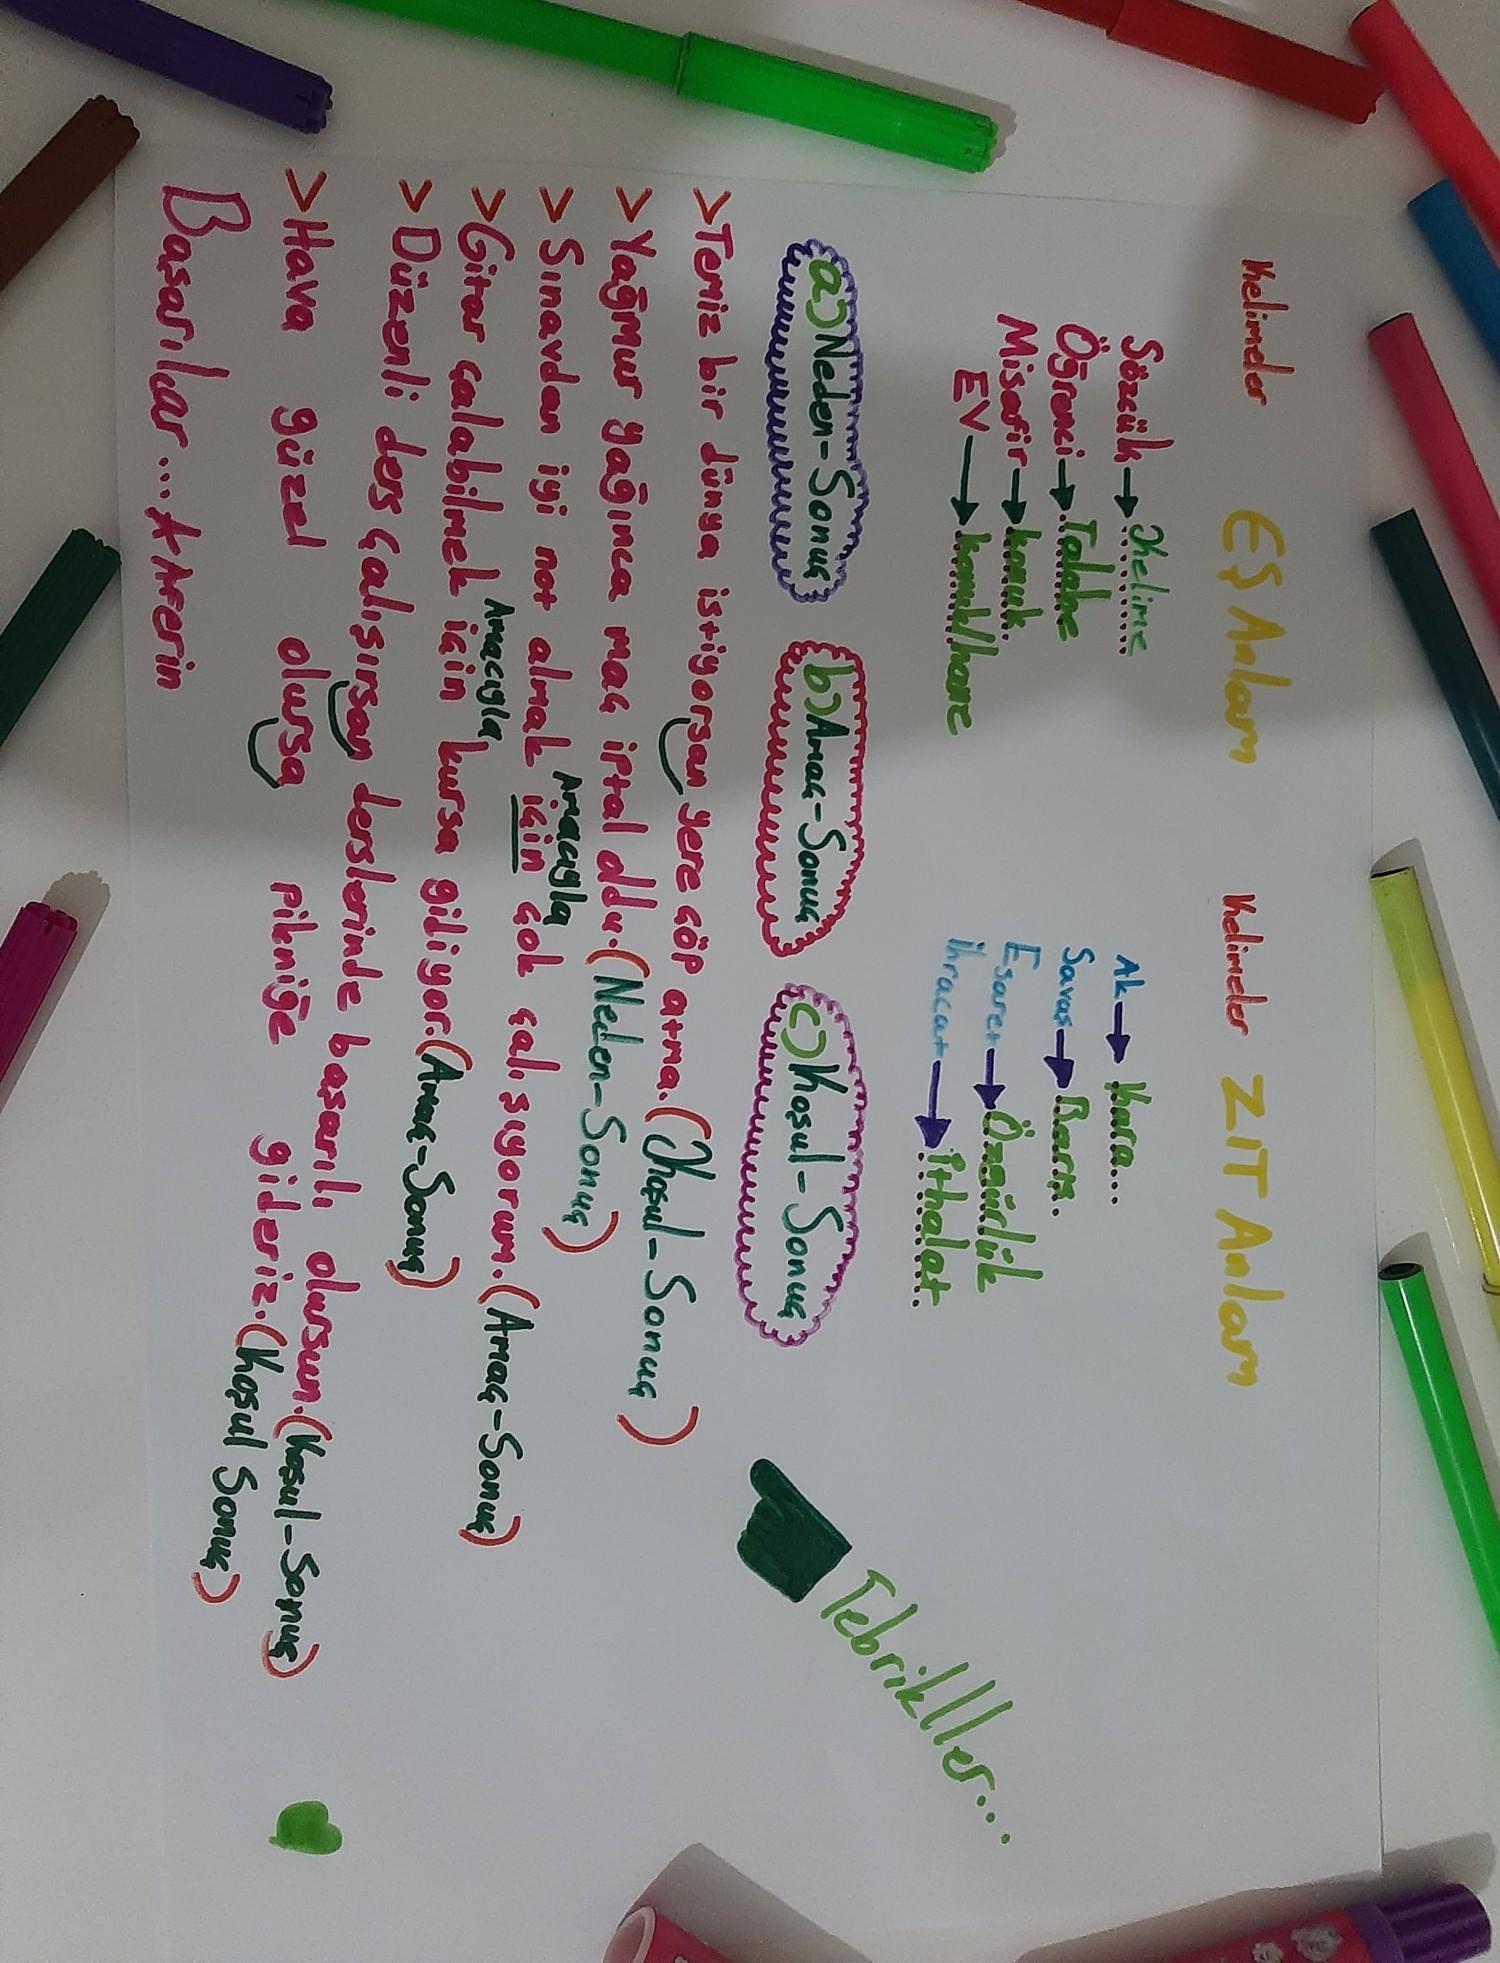 Kelimeler EŞ Anlam
Sözcük → Kelime
Öğrenci → Talebe
Misafir → konuk
EV → konut/hane
Kelimeler ZIT Anlam
Ak → Kara...
Savaş → Barış.
Esaret → Özgürlük
ihracat → ithalat.
a) Neden-Sonuç b) Amaç-Sonuç c) Koşul-Sonuç
Tebrikller...
> Temiz bir dünya istiyorsan yere çöp atma. (Koşul-Sonuç)
> Yağmur yağınca maç iptal oldu. (Neden-Sonuç)
Amacıyla
> Sınavdan iyi not almak için çok çalışıyorum. (Amaç-Sonuç)
Amacıyla
> Gitar çalabilmek için kursa gidiyor. (Amaç-Sonuç)
> Düzenli ders çalışırsan derslerinde başarılı olursun. (Koşul-Sonuç)
> Hava güzel olursa pikniğe gideriz. (Koşul Sonuç)
Başarılar... Aferin